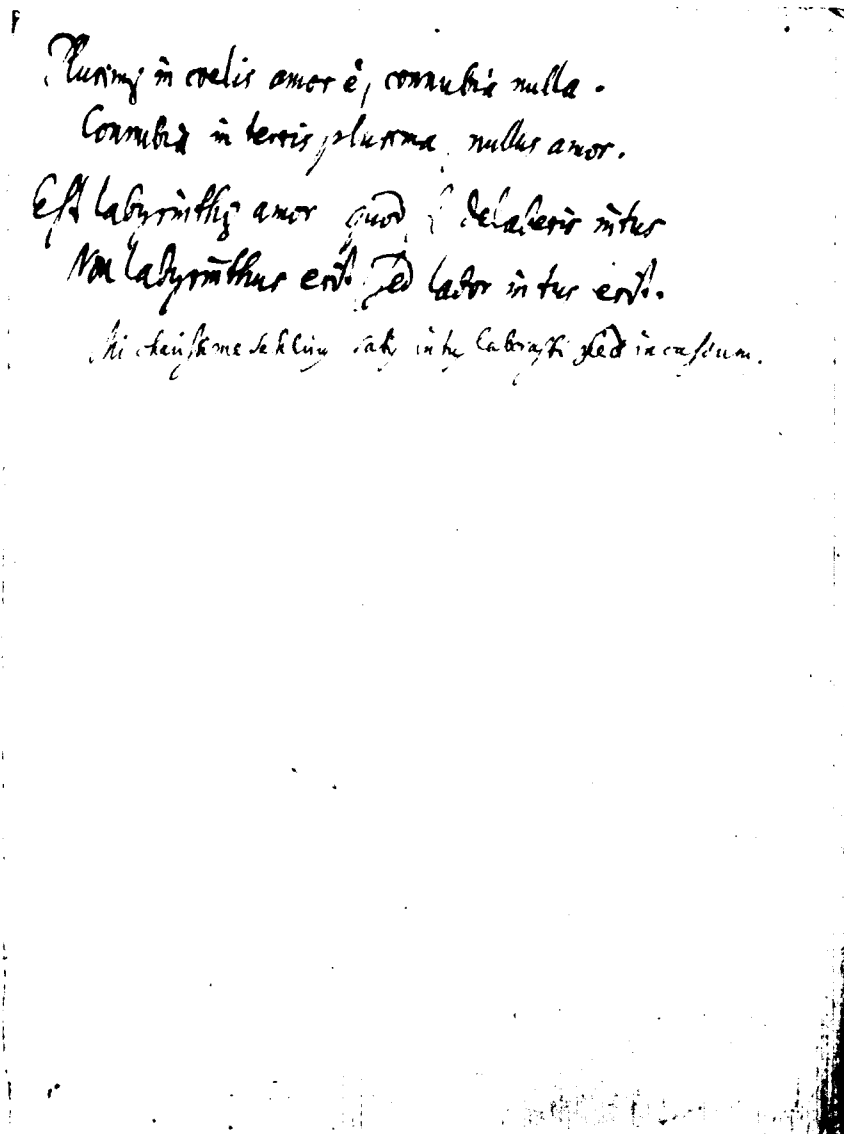 Plurimꝰ in coelis amor ē, connubia nulla.
Connubia in terris plurima, nullus amor.
Est labyrinthꝰ amor quod delaberis intus
Non labyrinthus erit sed labor intus erit.
Mi satꝰ intꝰ laborasti sed in cassum.